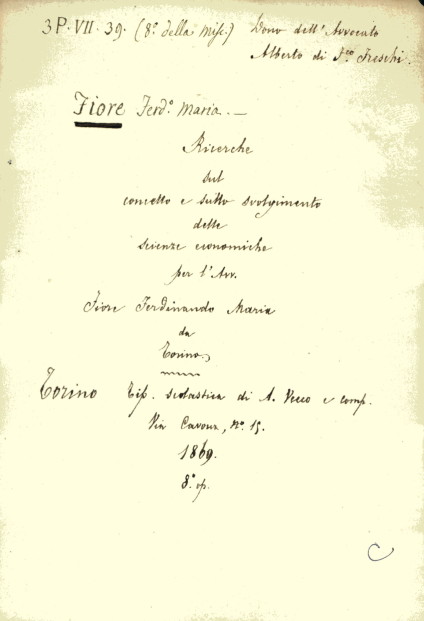 3 P. VII. 39. (8.º della Misc.) Dono dell'Avvocato
Alberto di F.co Freschi.
Fiore Ferd.º Maria. —
Ricerche
sul
concetto e sullo svolgimento
delle
scienze economiche
per l'Avv.
Fiore Ferdinando Maria
da
Torino
Torino Tip. scolastica di A. Vecco e comp.
Via Cavour, Nº. 15.
1869.
8.º op.
C